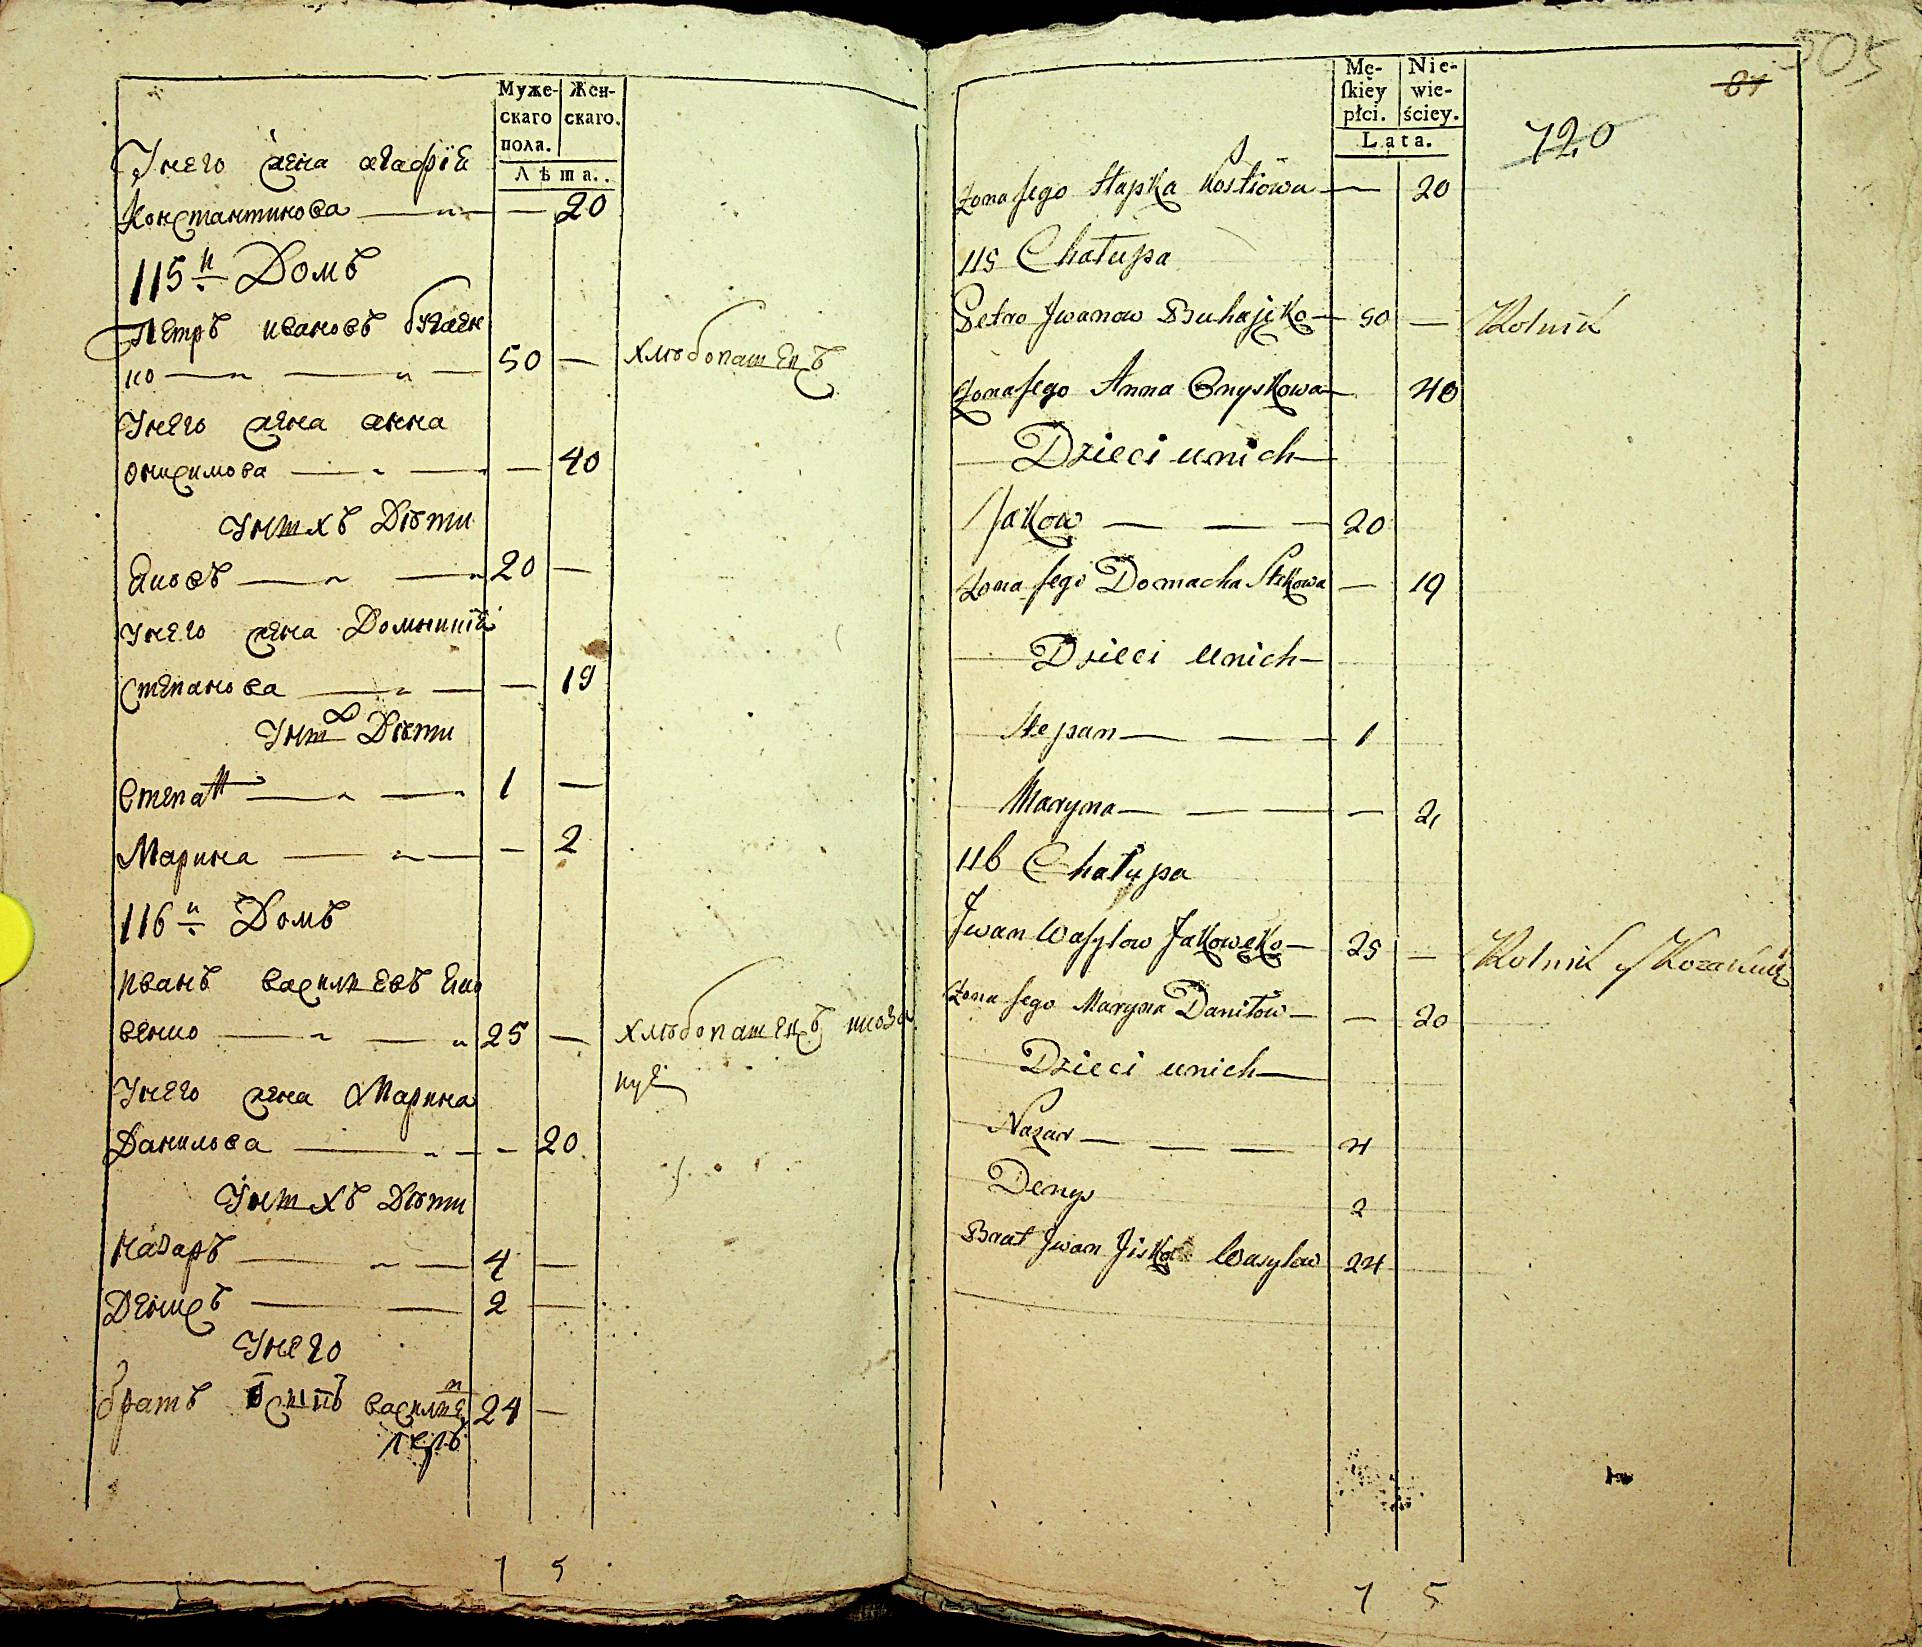 Муже-
скаго
пола.
Жен-
скаго.
Лѣта..
Унего жена агафїя
Константинова — — 20
115й Домъ
Петръ ивановъ бугаен
ко — — 50 — хлѣбопашецъ
Унего жена анна
онисимова — — — 40
Унихъ Дѣти
Яковъ — — 20 —
Унего жена Домникїя
Степанова — — — 19
Унихъ Дѣти
Степан — — 1 —
Марина — — — 2
116й Домъ
иванъ васильевъ Яко
венко — — 25 — хлѣбопашецъ икоза
куе
Унего жена Марина
Данилова — — — 20
Унихъ Дѣти
назаръ — — 4 —
Денисъ — — 2 —
Унего
братъ василие 24 —
1 5
505
81
720
Mę-
ſkiey
płci.
Nie-
wie-
ściey.
Lata.
Zona Jego Hapka Kostiowa — — 20
115 Chałupa
Petro Jwanow Buhajęko — 50 — Rolnik
Zona Jego Anna Onyskowa — 40
Dzieci unich —
Jakow — — — 20
Zona Jego Domacha Stekowa — 19
Dzieci Unich —
Stepan — — — 1
Maryna — — — — 2
116 Chałupa
Jwan Wasylow Jakowęko — 25 — Rolnik y Kozakuie
Zona Jego Maryna Daniłow — — 20
Dzieci unich —
Nazar — — — 4
Denys 2
Brat Jwan Wasylow 24
1 5